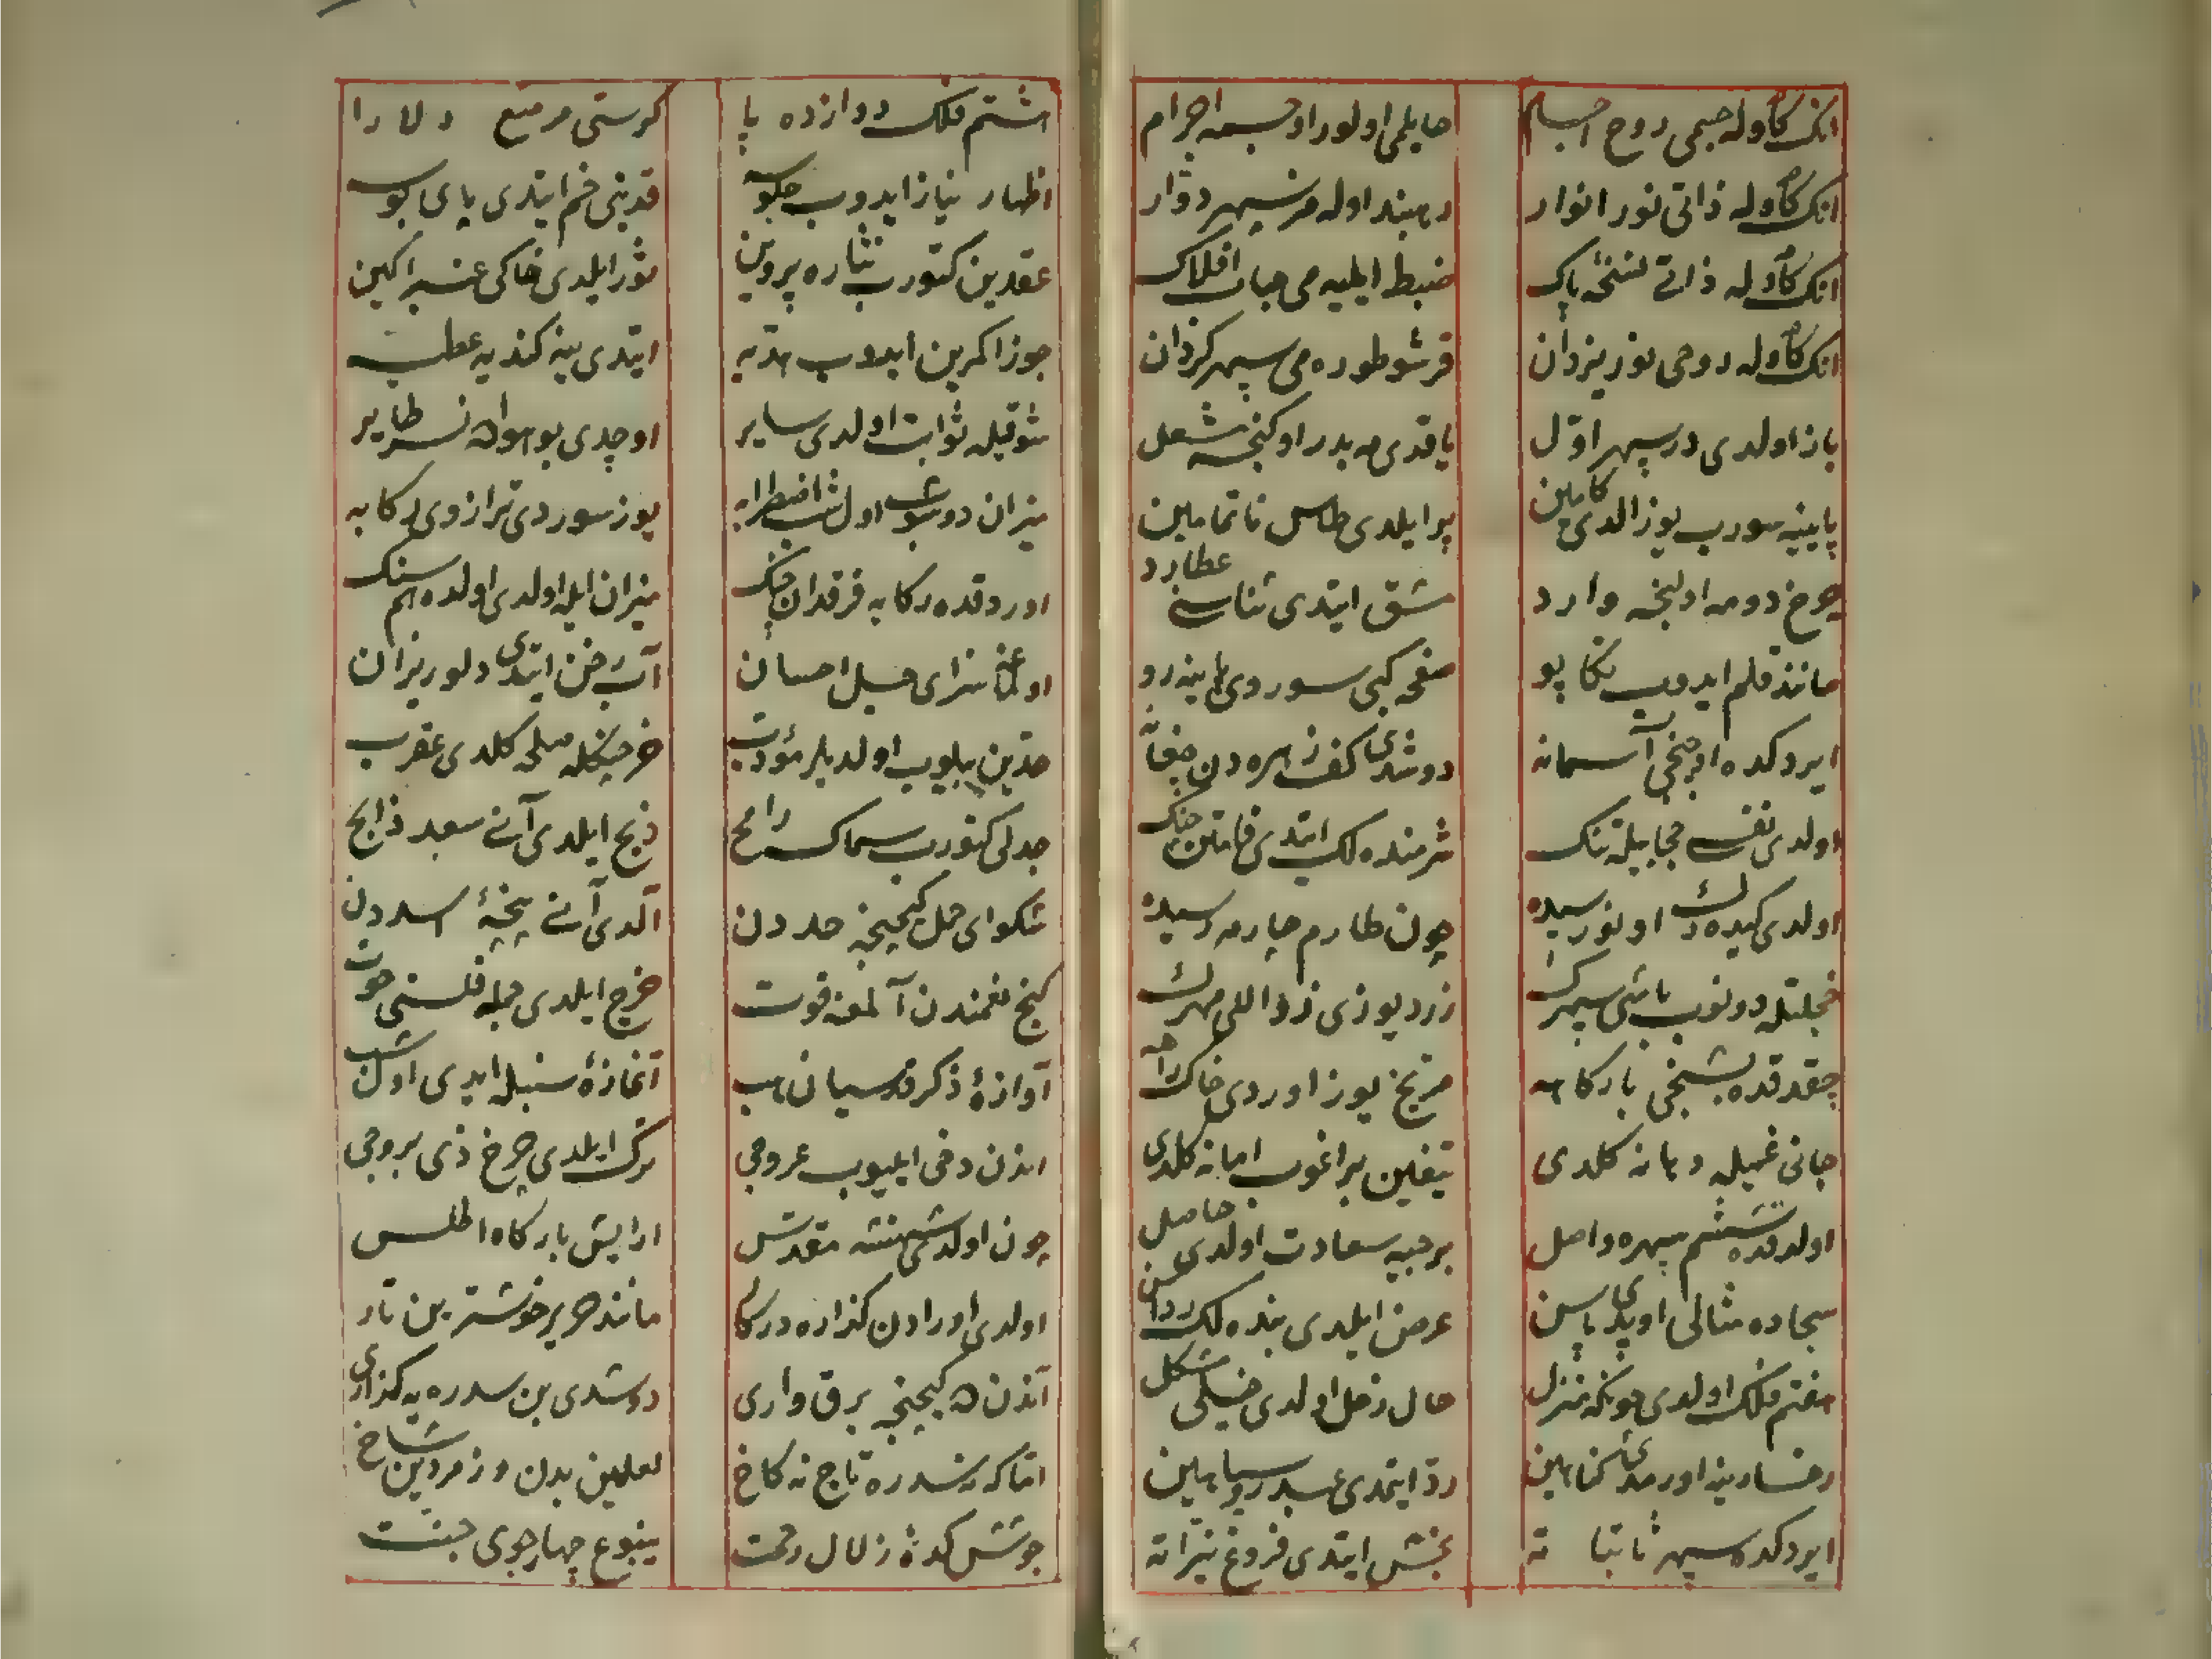 انک کاوله جسمی روح اجسام
حایلمی اولور اوجسمه اجرام
انک کاوله ذاتی نور انوار
رهبند اوله مز سپهر دوّار
انک کاوله ذاتی نسخهٔ پاک
ضبط ایلیه می حباب افلاک
انک کاوله روحی نور یزدان
قرشو طوره می سپهر کردان
باز اولدی در سپهر اوّل
یاقدی مه بدر اوکنجه مشعل
پایینه سورب یوز الدی کامین
پر ایلدی طاس ناتمامین
چرخ دومه اولنجه وارد
مشق ایتدی ثناسنی عطارد
مانند قلم ایدوب تکاپو
صفحه کبی سوردی پاینه رو
ایردکده اوچنجی آسمانه
دوشدی کف زهره دن چغانه
اولدی نفسی حجابیله تنک
شرمنده لک ایتدی قامتن چنک
اولدی کیده رک او نور سیده
چون طارم چارمه رسیده
خجلتله دونوب باشی سپهرک
زرد یوزی زرد اللی مهرک
چقدقده بشنجی بارکاهه
مریخ یوز اوردی خاک راهه
جانی غمیله دهانه کلدی
تیغین براغوب امانه کلدی
اولدقده ششم سپهره واصل
برجیسه سعادت اولدی حاصل
سجاده مثالی اوپدی پاسن
عرض ایلدی بنده لک رداسن
هفتم فلک اولدی چونکه منزل
حال زحل اولدی خیلی مشکل
رخسارینه اورمدی کناهین
ردّ ایتمدی عبد روسیاهین
ایردکده سپهر ثابتانه
بخش ایتدی فروغ نیّرانه
اشتم فلک دوازده پا
کرسئ مرصع دلارا
اظهار نیاز ایدوب جلوسه
قدینی خم ایتدی پای بوسه
عقدین کتورب نثاره پروین
نور ایلدی خاکی عنبر اکین
جوزا کمرین ایدوب هدیه
ایتدی ینه کندیه عطیه
شوقیله ثوابت اولدی سایر
اوچدی بو هواده نسر طایر
میزان دوشوب اول شب اضطرابه
یوز سوردی ترازوی رکابه
اوردقده رکابه فرقدان چنک
میزان ایله اولدی اولده هم سنک
اولماغن سزای سیل احسان
آب رخن ایتدی دلو ریزان
حدّین بیلوب اولدیلر مؤدّب
خرچنکله صلحه کلدی عقرب
جدی کتورب سماک رامح
ذبح ایلدی آنی سعد ذابح
شکوای حمل کچینجه حددن
آلدی آنی پنجهٔ اسددن
کنج نعمندن آلمغه قوت
خرج ایلدی جمله فلسنی حوت
آوازهٔ ذکر قدسیان هب
آغازهٔ سنبله ایدی اول شب
اندن دخی ایلیوب عروجی
ترک ایلدی چرخ ذی بروجی
چون اولدی شهنشه مقدّس
ارایش بارکاه اطلس
اولدی اورادن کذاره درکار
مانند حریر خوشترین تار
آندن ده کچینجه برق واری
دوشدی بن سدره یه کذاری
امّا که نه سدره تاج نه کاخ
لعلین بدن و زمردین شاخ
جوشش کده زلال رحمت
ینبوع چهارجوی جنّت